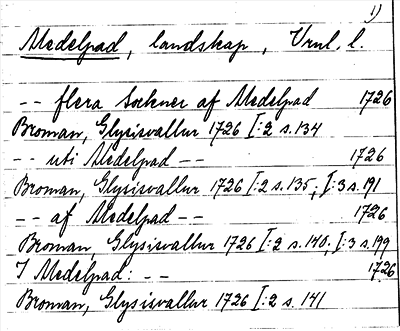 1)
Medelpad, landskap, Vrnl. l.
-- flera Sockner af Medelpad 1726
Broman, Glysisvallur 1726 I:2 s. 134
-- uti Medelpad -- 1726
Broman, Glysisvallur 1726 I:2 s. 135; I:3 s. 191
-- af Medelpad -- 1726
Broman, Glysisvallur 1726 I:2 s. 140. I:3 s. 199
I Medelpad: -- 1726
Broman, Glysisvallur 1726 I:2 s. 141